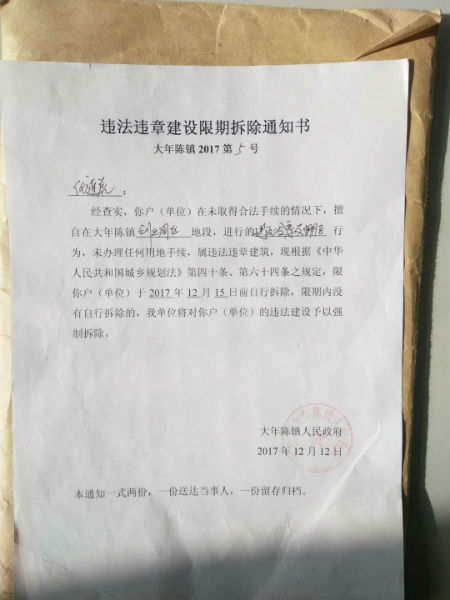 违法违章建设限期拆除通知书
大年陈镇 2017 第 5 号
：
经查实，你户（单位）在未取得合法手续的情况下，擅
自在大年陈镇 地段，进行的 行
为，未办理任何用地手续，属违法违章建筑，现根据《中华
人民共和国城乡规划法》第四十条、第六十四条之规定，限
你户（单位）于 2017 年 12 月 15 日前自行拆除，限期内没
有自行拆除的，我单位将对你户（单位）的违法建设予以强
制拆除。
大年陈镇人民政府
2017 年 12 月 12 日
本通知一式两份，一份送达当事人，一份留存归档。